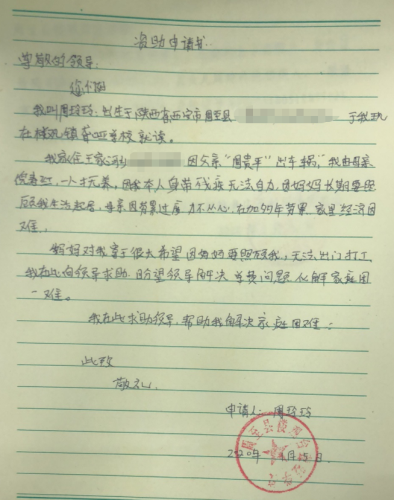 资助申请书
尊敬的领导:
您们好
我叫周玲玲,出生于陕西省西安市周至县 于我现
在楼观镇 学校就读。
我家住王家河 因父亲“周贵平”出车祸,我由母亲
一人抚养,因本人自带残疾无法自力,因妈妈长期要照
顾我生活起居,母亲因劳累过度力不从心,在加力年劳累,家里经济困
难、
妈妈对我寄于很大希望因妈妈要照顾我,无法出门打工
我在此向领导求助,盼望领导解决学费问题,从解家庭困
难。
我在此求助领导,帮助我解决家庭困难:
此致
敬礼
申请人:周玲玲
周至县楼观
2020年 月15日